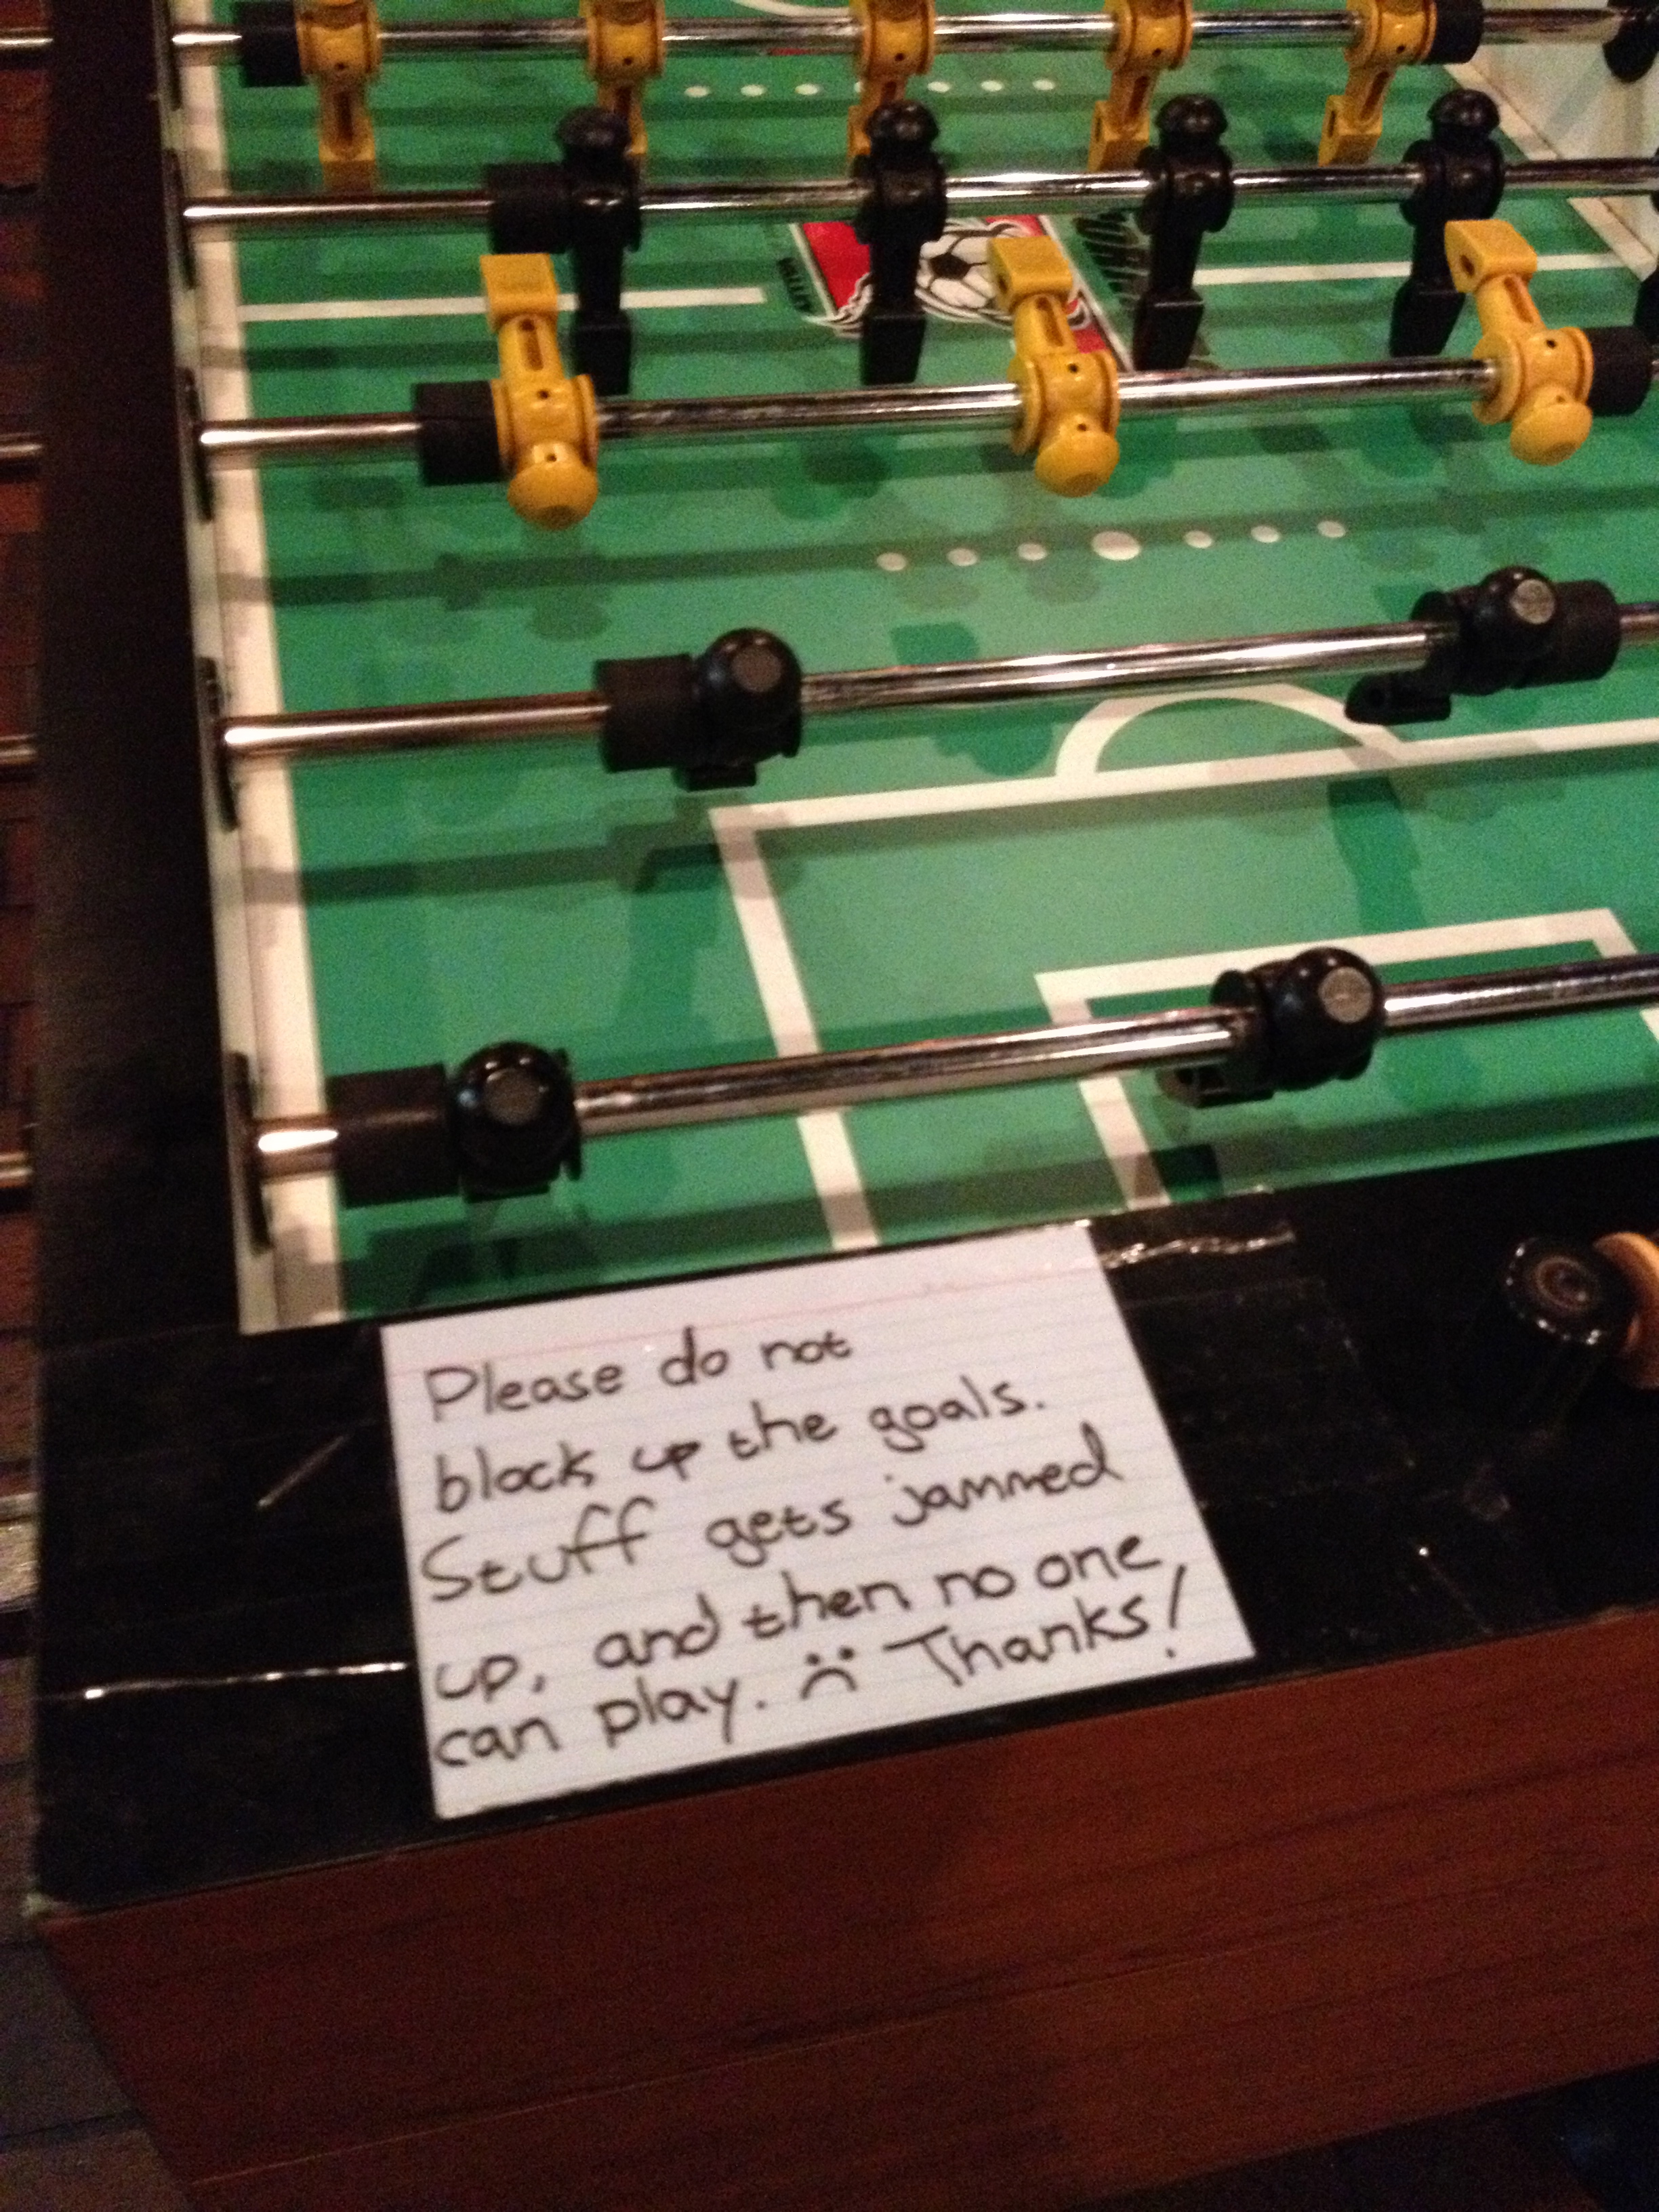 Please do not
block up the goals.
Stuff gets jammed
up, and then no one
can play. ☹ Thanks!
VALLEY